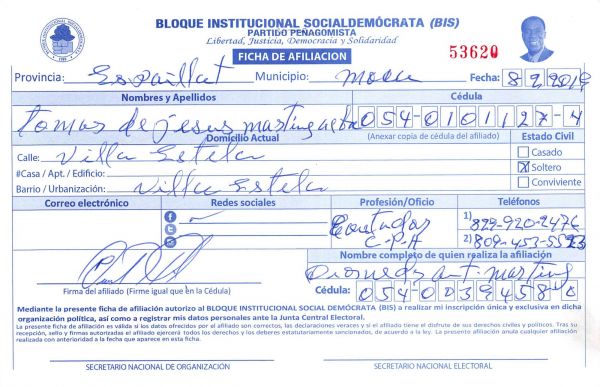 BLOQUE INSTITUCIONAL SOCIALDEMÓCRATA (BIS)
PARTIDO PEÑAGOMISTA
Libertad, Justicia, Democracia y Solidaridad
FICHA DE AFILIACION
53620
Provincia: Espaillat Municipio: Moca Fecha: 8/2/2019
Nombres y Apellidos Cédula
tomas de jesus martinez 054-0101127-4
Domicilio Actual (Anexar copia de cédula del afiliado) Estado Civil
Calle: Villa Estela
Casado
#Casa / Apt. / Edificio: Soltero
Barrio / Urbanización: Villa Estela Conviviente
Correo electrónico Redes sociales Profesión/Oficio Teléfonos
Contador 1) 829-920-2476
C-P-A 2) 809-453-5523
Nombre completo de quien realiza la afiliación
ant. martinez
Firma del afiliado (Firme igual que en la Cédula) Cédula: 054-0039458-
Mediante la presente ficha de afiliación autorizo al BLOQUE INSTITUCIONAL SOCIAL DEMÓCRATA (BIS) a realizar mi inscripción única y exclusiva en dicha
organización política, así como a registrar mis datos personales ante la Junta Central Electoral.
La presente ficha de afiliación es válida si los datos ofrecidos por el afiliado son correctos, las declaraciones veraces y si el afiliado tiene el disfrute de sus derechos civiles y políticos. Tras su
recepción, sello y firmas autorizadas el afiliado ejercerá todos los derechos y los deberes estatutariamente sancionados, de acuerdo a la ley. La presente afiliación anula cualquier afiliación
realizada con anterioridad a la fecha que aparece en esta ficha.
SECRETARIO NACIONAL DE ORGANIZACIÓN SECRETARIO NACIONAL ELECTORAL